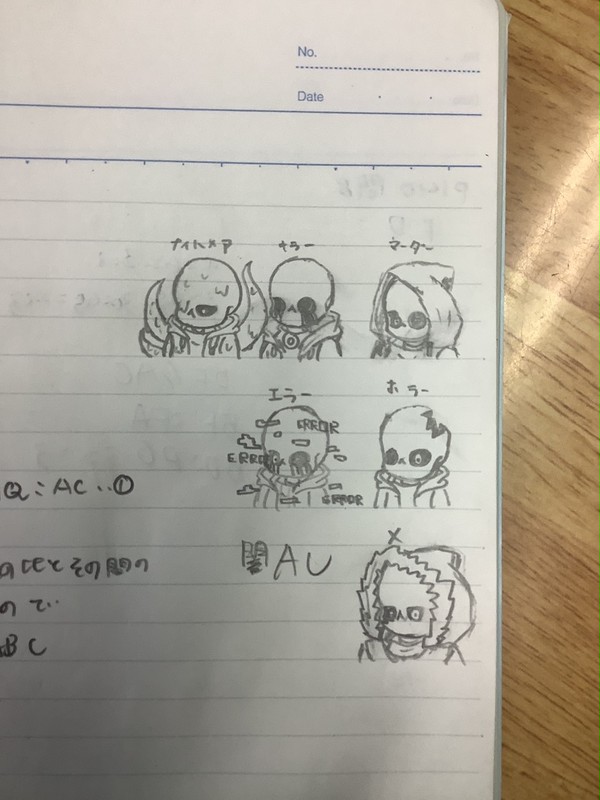 No.
Date
ナイトメア キラー マーダー
エラー ホラー
ERROR
ERROR
ERROR
Q:AC‥①
X
闇AU
のでEとその間の
ので‥
BC